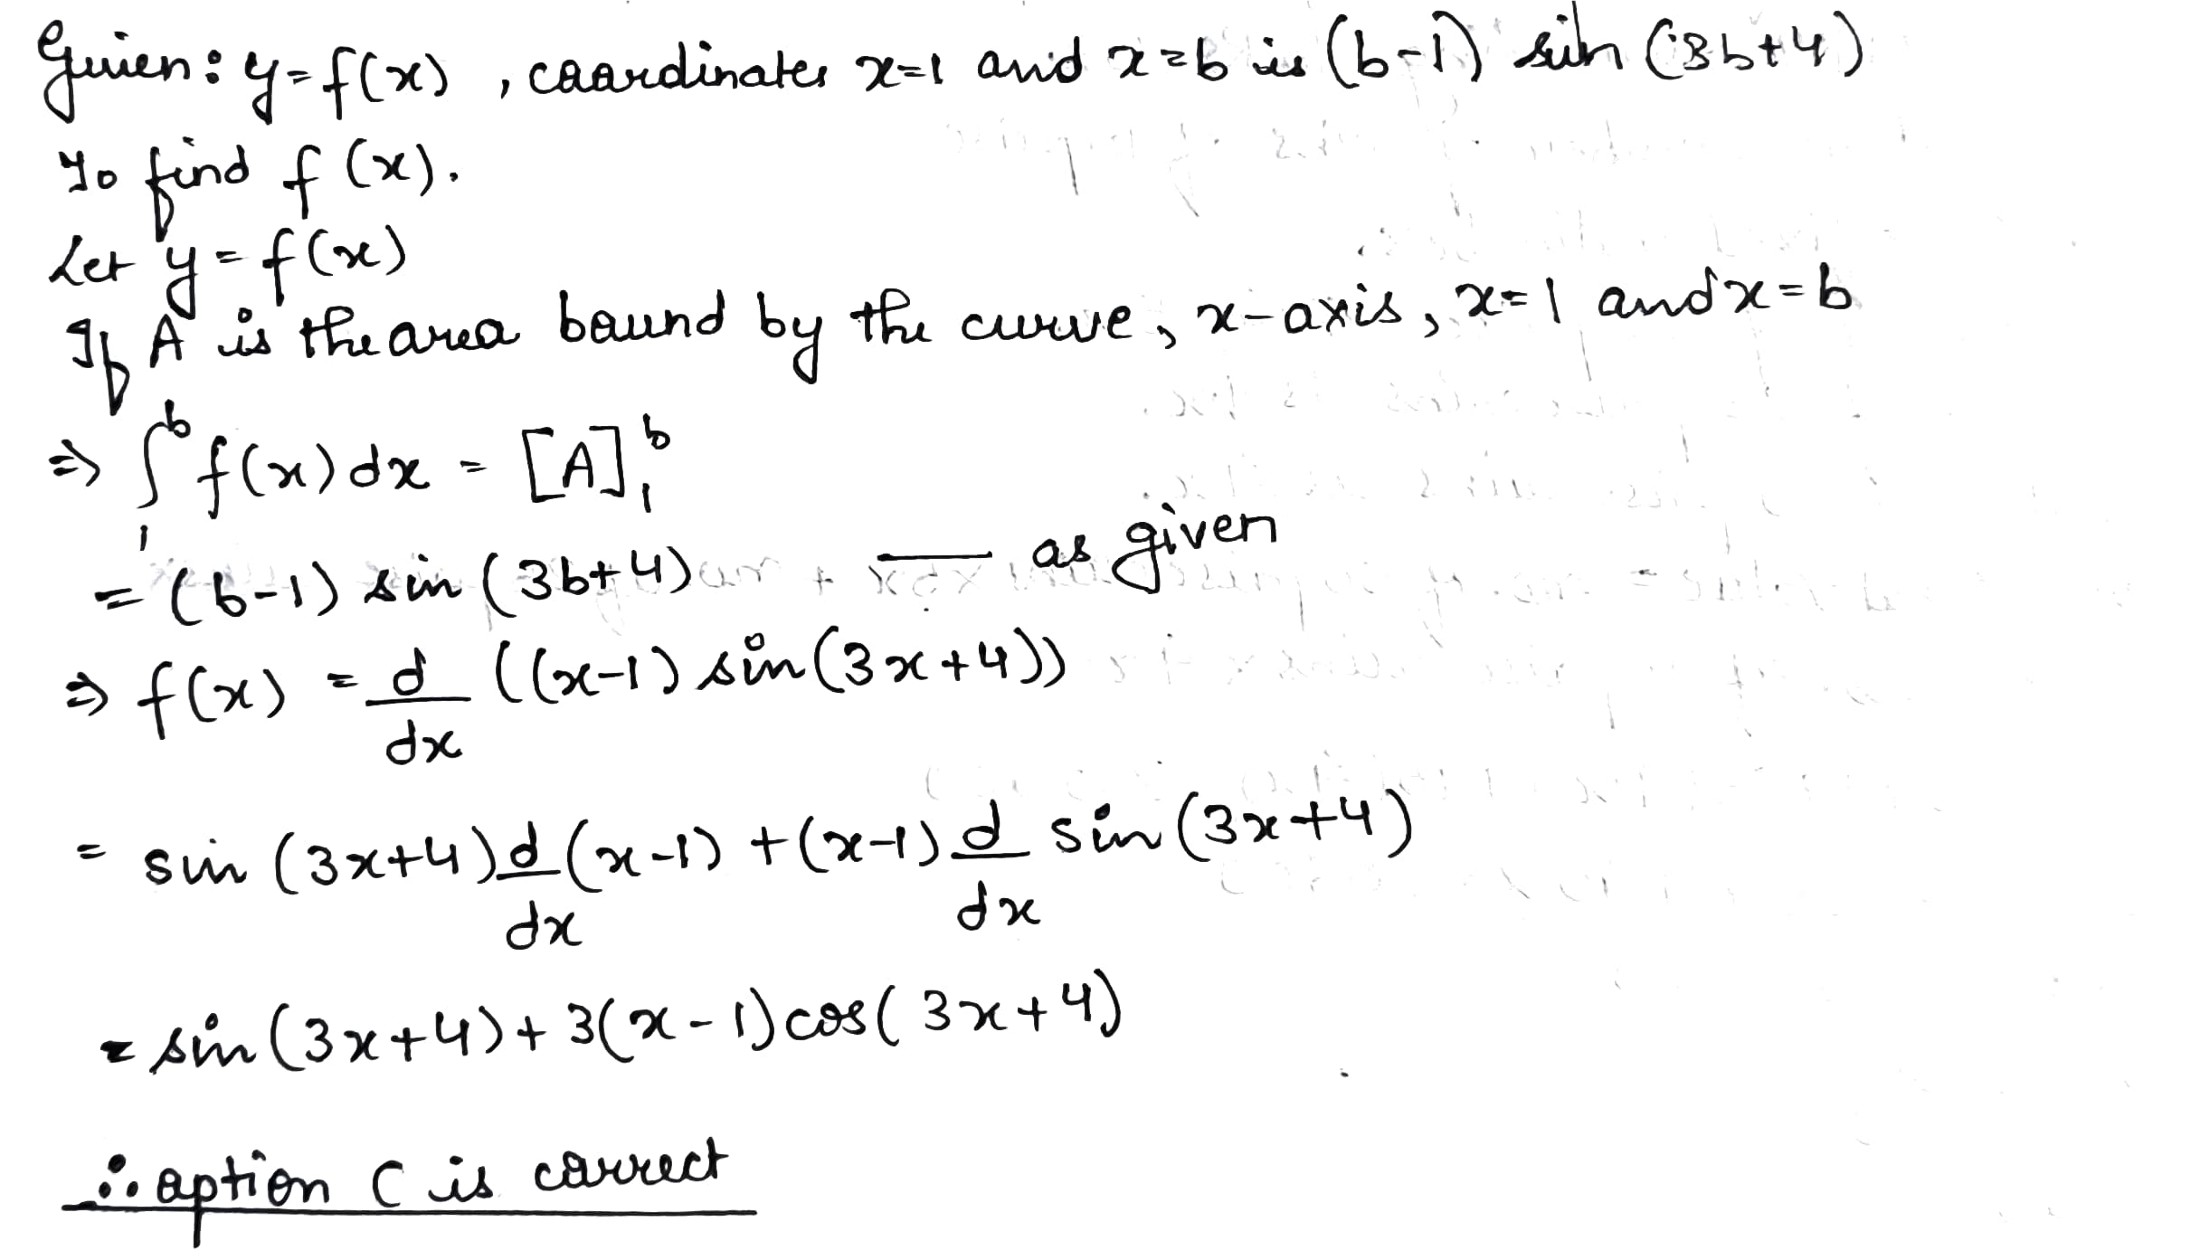 Given: y=f(x), coordinates x=1 and x=b is (b-1) sin (3b+4)
To find f(x).
Let y=f(x)
If A is the area bound by the curve, x-axis, x=1 and x=b
⇒ ∫₁ᵇ f(x) dx = [A]₁ᵇ
= (b-1) sin (3b+4) — as given
⇒ f(x) = d/dx ((x-1) sin(3x+4))
= sin (3x+4) d/dx (x-1) + (x-1) d/dx sin (3x+4)
= sin (3x+4) + 3(x-1) cos(3x+4)
∴ option C is correct